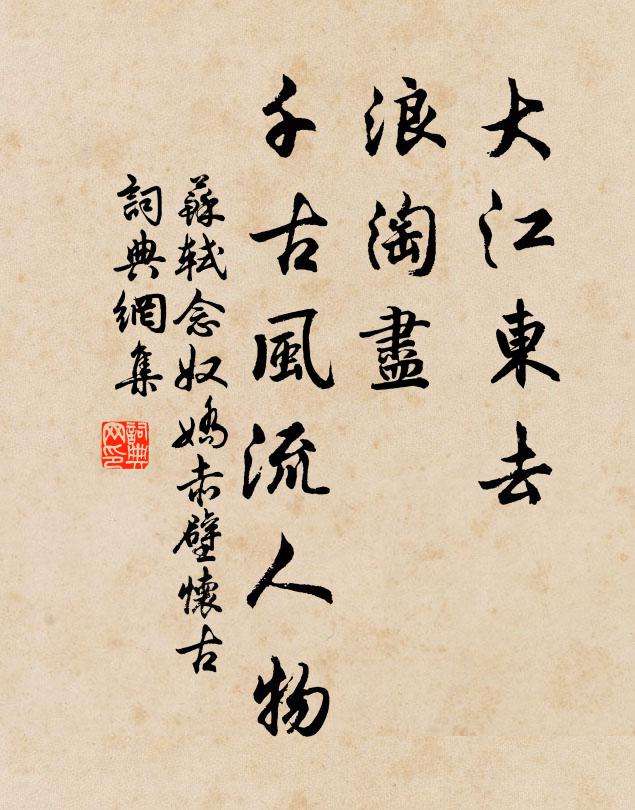 大江東去
浪淘盡
千古風流人物
蘇軾念奴嬌赤壁懷古
詞典網集
詞典网印